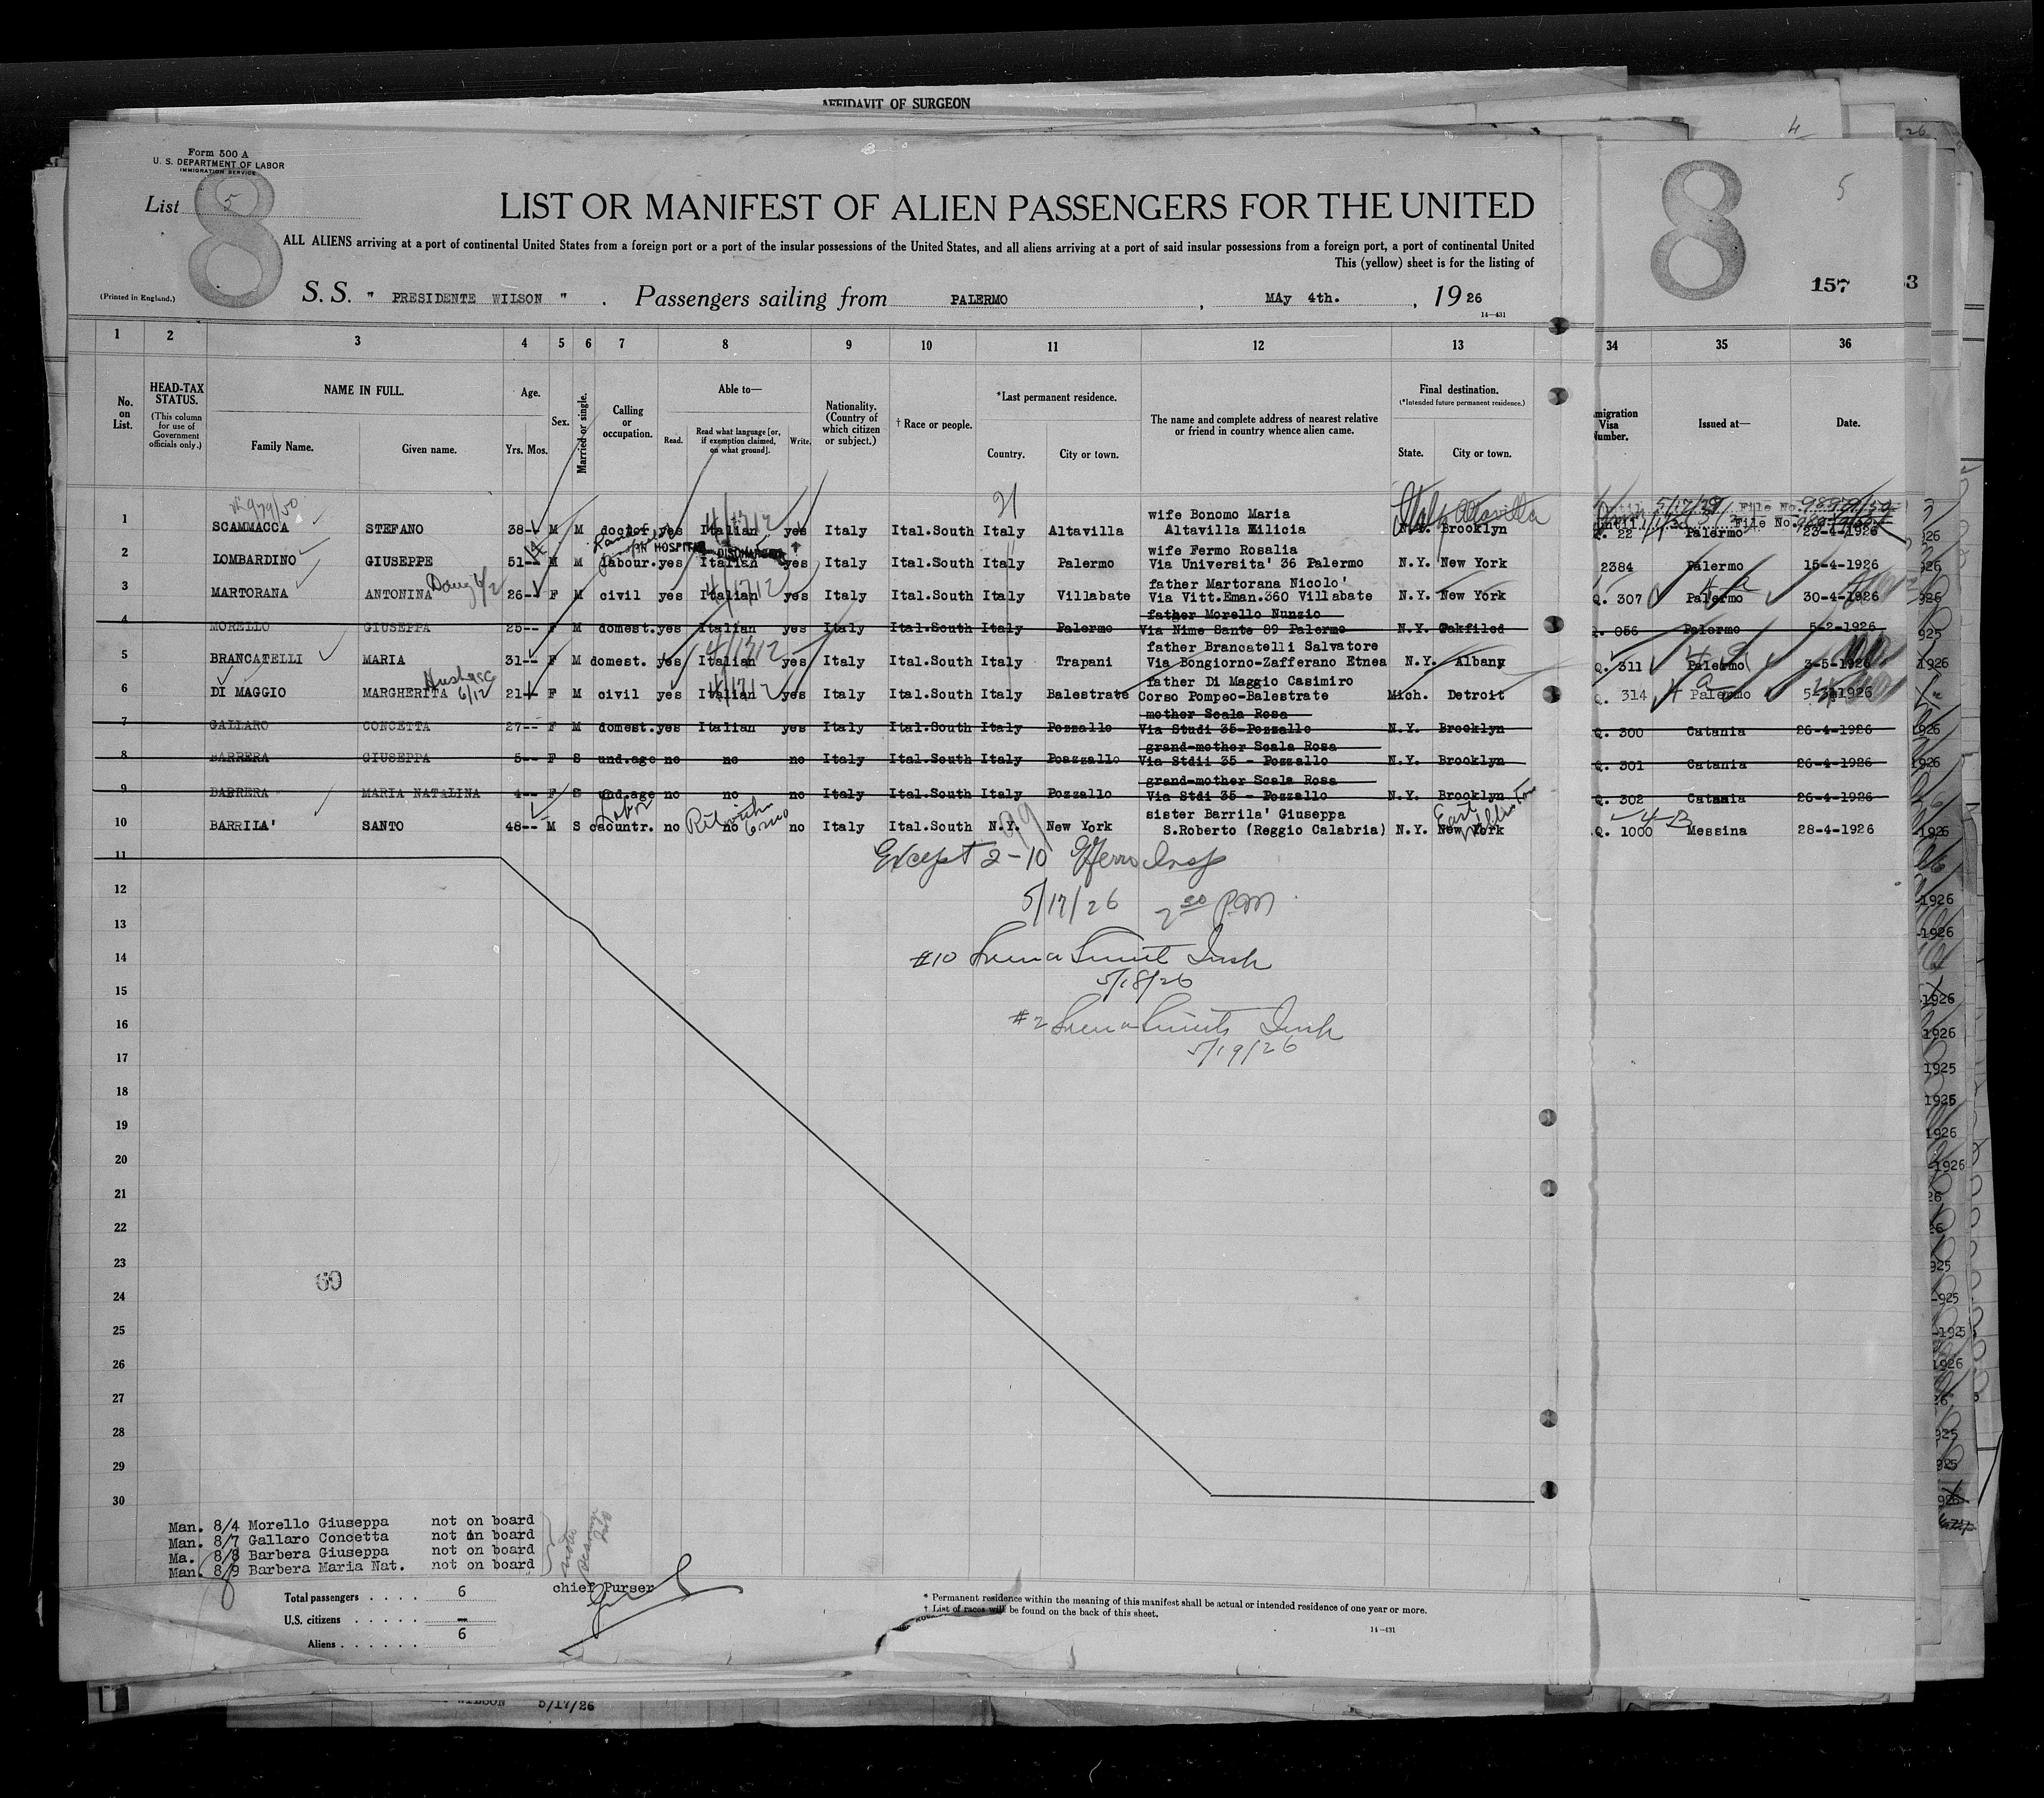 AFFIDAVIT OF SURGEON
Form 500 A
U. S. DEPARTMENT OF LABOR
IMMIGRATION SERVICE
8
List 5
LIST OR MANIFEST OF ALIEN PASSENGERS FOR THE UNITED
ALL ALIENS arriving at a port of continental United States from a foreign port or a port of the insular possessions of the United States, and all aliens arriving at a port of said insular possessions from a foreign port, a port of continental United
This (yellow) sheet is for the listing of
(Printed in England.)
S. S. " PRESIDENTE WILSON " . Passengers sailing from PALERMO , MAy 4th. , 19 26
14—431
8
5
157
1 2 3 4 5 6 7 8 9 10 11 12 13 34 35 36
No. on List.
HEAD-TAX STATUS.
(This column for use of Government officials only.)
NAME IN FULL.
Family Name. Given name.
Age.
Yrs. Mos.
Sex.
Married or single.
Calling or occupation.
Able to—
Read. Read what language [or, if exemption claimed, on what ground]. Write.
Nationality. (Country of which citizen or subject.)
† Race or people.
*Last permanent residence.
Country. City or town.
The name and complete address of nearest relative or friend in country whence alien came.
Final destination.
(*Intended future permanent residence.)
State. City or town.
migration Visa Number.
Issued at—
Date.
21
Italy Altavilla
wife Bonomo Maria
1 SCAMMACCA STEFANO 38-- M M doctor yes Italian yes Italy Ital.South Italy Altavilla Altavilla Milicia N.Y. Brooklyn Q. 22 Palermo 23-4-1926
IN HOSPITAL DISCHARGED
wife Fermo Rosalia
2 LOMBARDINO GIUSEPPE 51-- M M labour. yes Italian yes Italy Ital.South Italy Palermo Via Universita' 36 Palermo N.Y. New York 2384 Palermo 15-4-1926
father Martorana Nicolo'
3 MARTORANA ANTONINA 26-- F M civil yes Italian yes Italy Ital.South Italy Villabate Via Vitt.Eman.360 Villabate N.Y. New York Q. 307 Palermo 30-4-1926
father Morello Nunzio
4 MORELLO GIUSEPPA 25-- F M domest. yes Italian yes Italy Ital.South Italy Palermo Via Nime Sante 89 Palermo N.Y. Oakfiled Q. 056 Palermo 5-2-1926
father Brancatelli Salvatore
5 BRANCATELLI MARIA 31-- F M domest. yes Italian yes Italy Ital.South Italy Trapani Via Bongiorno-Zafferano Etnea N.Y. Albany Q. 311 Palermo 3-5-1926
father Di Maggio Casimiro
6 DI MAGGIO MARGHERITA 21-- F M civil yes Italian yes Italy Ital.South Italy Balestrate Corso Pompeo-Balestrate Mich. Detroit Q. 314 Palermo 5-3-1926
mother Scala Rosa
7 GALLARO CONCETTA 27-- F M domest. yes Italian yes Italy Ital.South Italy Pozzallo Via Studi 35-Pozzallo N.Y. Brooklyn Q. 300 Catania 26-4-1926
grand-mother Scala Rosa
8 BARRERA GIUSEPPA 5-- F S und.age no no no Italy Ital.South Italy Poazzallo Via Stdii 35 - Pozzallo N.Y. Brooklyn Q. 301 Catania 26-4-1926
grand-mother Scala Rosa
9 BARRERA MARIA NATALINA 4-- F S und.age no no no Italy Ital.South Italy Pozzallo Via Stdi 35 - Pozzallo N.Y. Brooklyn Q. 302 Catania 26-4-1926
sister Barrila' Giuseppa
10 BARRILA' SANTO 48-- M S countr. no no no Italy Ital.South N.Y. New York S.Roberto (Reggio Calabria) N.Y. New York Q. 1000 Messina 28-4-1926
99
11
Except 2-10
12
5/17/26 2 30 PM
13
14
#10
5/18/26
15
16
#2
5/19/26
17
18
19
20
21
22
23
60
24
25
26
27
28
29
30
Man. 8/4 Morello Giuseppa not on board
Man. 8/7 Gallaro Concetta not on board
Ma. 8/8 Barbera Giuseppa not on board
Man. 8/9 Barbera Maria Nat. not on board
chief Purser
Total passengers . . . . 6
U.S. citizens . . . . . —
Aliens . . . . . . 6
* Permanent residence within the meaning of this manifest shall be actual or intended residence of one year or more.
† List of races will be found on the back of this sheet.
14—431
WILSON 5/17/26